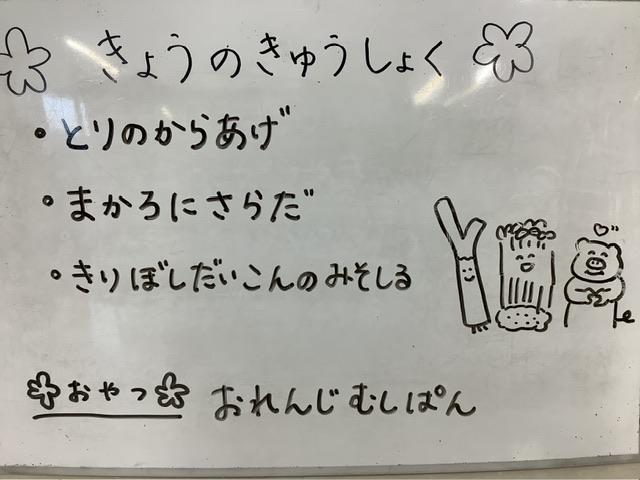 きょうのきゅうしょく
・とりのからあげ
・まかろにさらだ
・きりぼしだいこんのみそしる
おやつ おれんじむしぱん